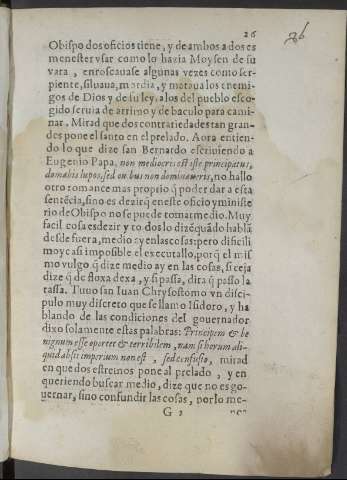 26
26
Obispo dos oficios tiene, y de ambos a dos es
menester vsar como lo hazia Moysen de su
vara, enroscauase algunas vezes como ser-
piente, siluaua, mordia, y mataua los enemi
gos de Dios y de su ley, a los del pueblo esco-
gido seruia de arrimo y de baculo para cami
nar. Mirad que dos contrariedades tan gran-
des pone el santo en el prelado. Aora entien-
do lo que dize san Bernardo escriuiendo a
Eugenio Papa, non mediocris est iste principatus,
domabis lupos, sed ouibus non dominaueris, no hallo
otro romance mas proprio q̃ poder dar a esta
sentẽcia, sino es dezir q̃ en este oficio y ministe
rio de Obispo no se puede tomar medio. Muy
facil cosa es dezir y todos lo dizẽ quãdo hablã
desde fuera, medio ay en las cosas: pero dificili
mo y casi imposible el executallo, porq̃ el mis
mo vulgo q̃ dize medio ay en las cosas, si ceja
dize q̃ de floxa dexa, y si passa, dira q̃ passo la
tassa. Tuuo san Iuan Chrysostomo vn disci-
pulo muy discreto que se llamo Isidoro, y ha
blando de las condiciones del gouernador
dixo solamente estas palabras: Principem & be
nignum esse oportet & terribilem, nam si horum ali-
quid absit imperium non est, sed confusio, mirad
en que dos estreinos pone al prelado, y en
queriendo buscar medio, dize que no es go-
uernar, sino confundir las cosas, por lo me-
G 2 nos